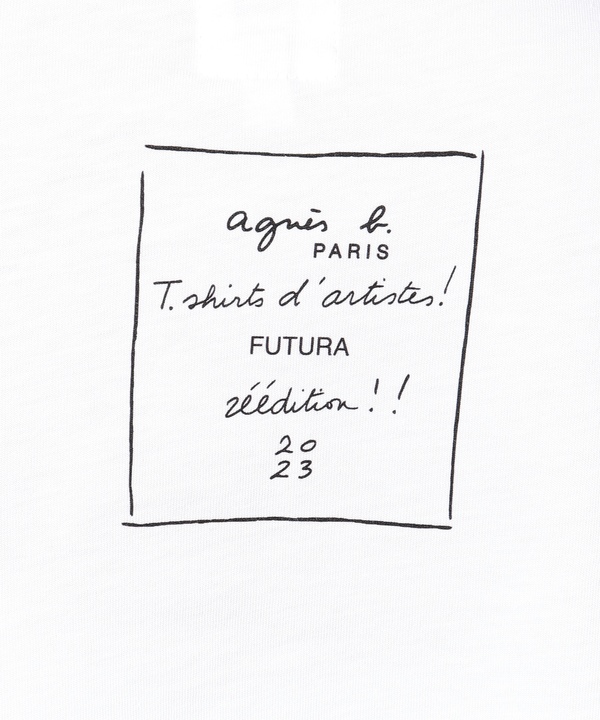 agnès b.
PARIS
T.shirts d'artistes!
FUTURA
réédition!!
20
23